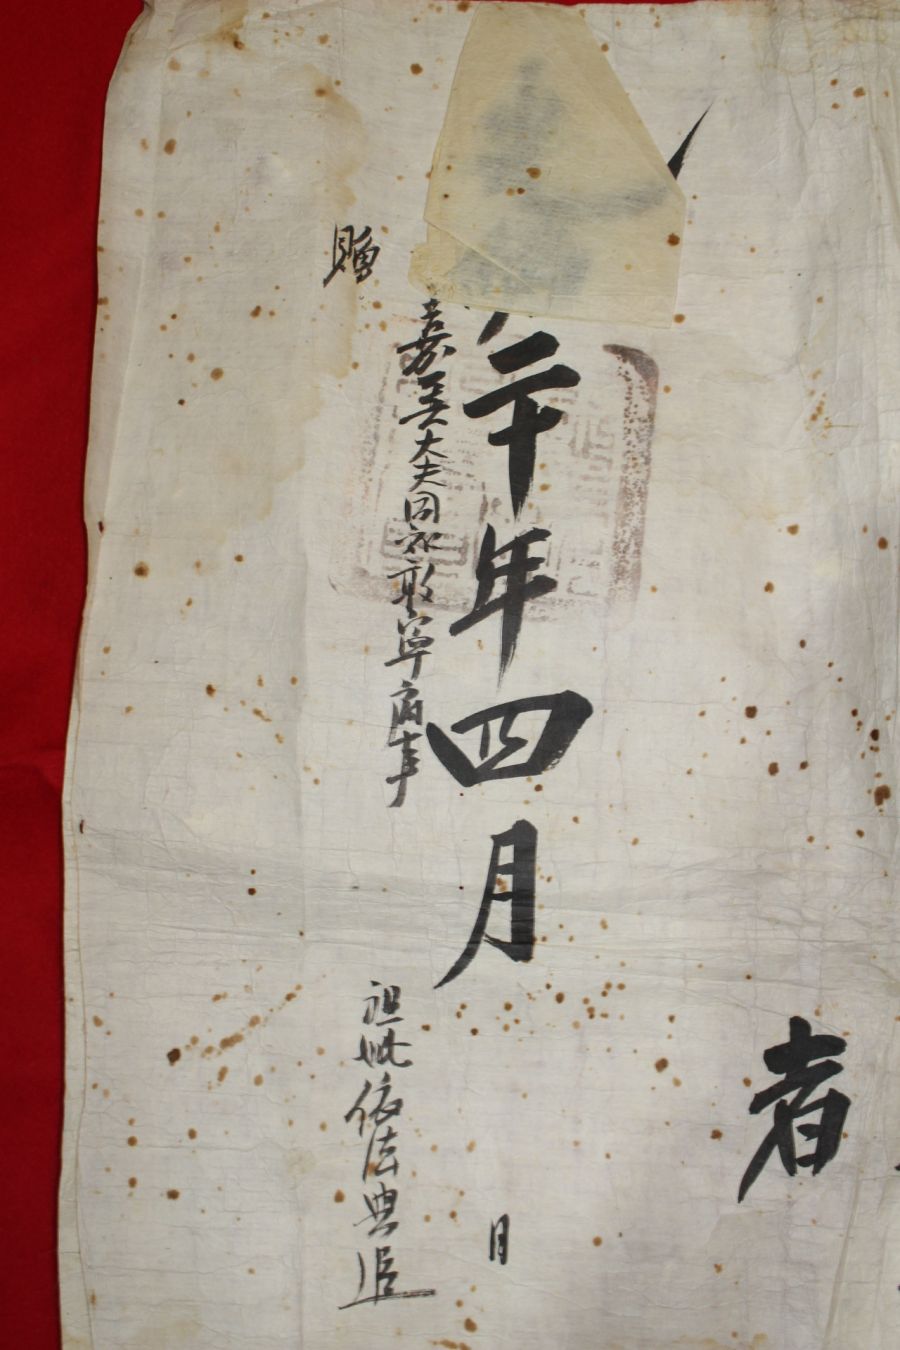 者
二十年四月 日
嘉善大夫同知敦寧府事 祖妣依法典追
贈